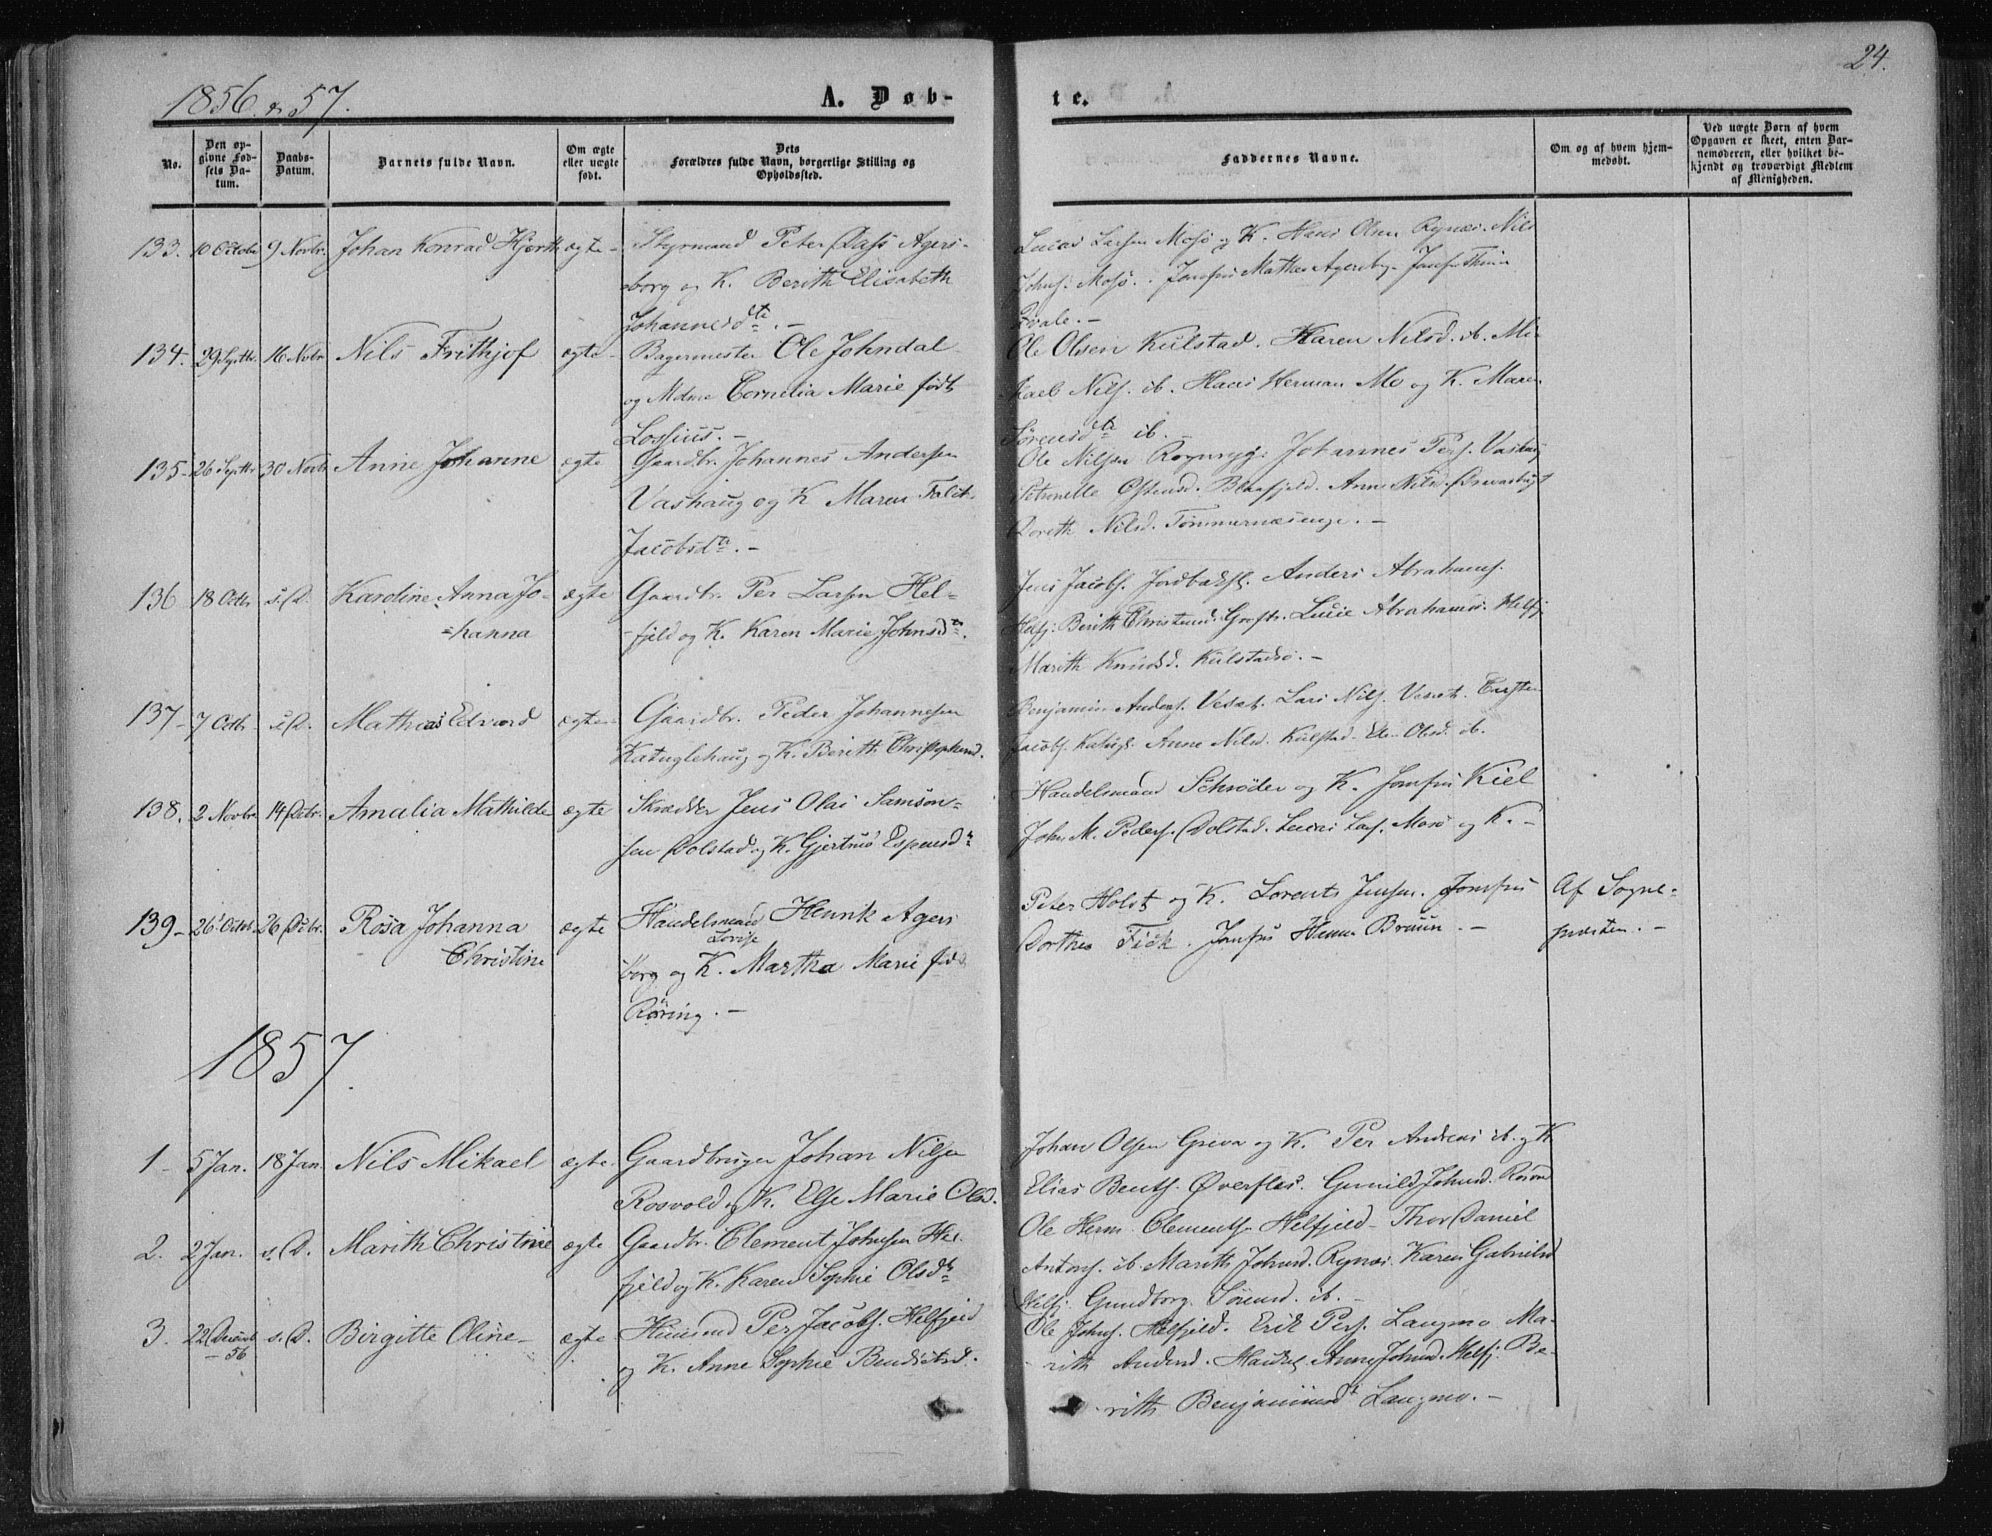 24.
1856 & 57.
A. Døb-
te.
No.
Den op-
givne Fød-
sels Da-
tum.
Daabs-
Datum.
Barnets fulde Navn.
Om ægte
eller uægte
født.
Dets
Forældres fulde Navn, borgerlige Stilling og
Opholdssted.
Faddernes Navne.
Om og af hvem hjem-
medøbt.
Ved uægte Børn af hvem
Opgaven er skeet, enten Bar-
nemoderen, eller hvilket be-
kjendt og troværdigt Medlem
af Menigheden.
133. 10 Octobr 9 Novbr. Johan Konrad Hjorth ægte- Styrmand Peter Dass Agers-
borg og K. Berith Elisabeth
Johannesdte. -
Lucas Larsen Mosø og K. Hans Olsen Rynæs. Nils
Johns. Mosø. Jomfru Mathea Agersborg. Jomfru
Qvale. -
134. 29 Septbr. 16 Novbr Nils Frithjof ægte- Bagermester Ole Johndal
og Mdme Cornelia Marie født
Lossius. -
Ole Olsen Kulstad. Karen Nilsd. ib. Mi-
kael Nils. ib. Hans Herman Mo og K. Maren
Sørensdtr ib. -
135- 26 Septbr 30 Novb Anne Johanne ægte Gaardbr. Johannes Andersen
Vashaug og K Maren
Jacobsdtr. -
Ole Nilsen Johannes Pers. Vashaug
Petronelle Ostensd. Blaafjeld. Anne Nilsd.
Doreth Nilsd. Tømmernæsenge. -
136 18 Octbr s. D. Karoline Anna Jo-
=hanna
ægte Gaardbr. Per Larsen Hel-
-fjeld og K. Karen Marie Johnsdtr.
Jens Jacobs. Anders Abrahams.
Helfj: Berith Christensd. Lucie Abrahamsd. Helfj
Marith Knudsd. Kulstadsø. -
137- 7 Octbr s. D. Mathias Edvard ægte- Gaardbr. Peder Johannesen
Katuglehaug og K. Berith Christophersd.
Benjamin Anders. Vesæt. Lars Nils. Vesæt.
Jacobs. Katugl. Anne Nilsd. Kulstad. Olsd. ib.
138. 2 Novbr 14 Debr. Amalia Mathilde ægte Skrædder Jens Olai Samson-
sen Dolstad og K. Gjertrud Espensdtr
Handelsmand Schrøder og K. Jomfru Kiel
John M. Peders. Dolstad. Lucas Lars. Mosø og K. -
139- 26 Octbr 26 Debr. Rosa Johanna
Christine
ægte Handelsmand Henrik Agers
Lovise
borg og K. Martha Marie fød
Røring. -
Peter Holst og K. Lorents Jensen. Jomfru
Dorthea Fick. Jomfru Hanna Bruun. -
Af Sogne-
præsten. -
1857.
1- 5 Jan. 18 Jan. Nils Mikael ægte- Gaardbruger Johan Nilsen
Rosvold og K. Else Marie Olsd.
Johan Olsen Greva og K. Per Andreas ib. og K
Elias Bents. Øverfles. Gunild Johnsd.
2. 2 Jan. s. D. Marith Christine ægte Gaardbr. Clement Johnsen Hel-
fjeld og K. Karen Sophie Olsdtr
Ole Herm. Clements. Helfjeld- Thor Daniel
Antons. ib. Marith Johnsd. Rynæs. Karen Gabrielsd
Helfj. Gundborg Sørensd. ib. -
3. 22 Decemb
- 56
s. D. Birgitte Oline- ægte Huusmd Per Jacobs. Helfjeld
og K. Anne Sophie Bendictsd.
Ole Johns. Helfjeld. Erik Pers. Langmo Ma-
rith Andersd. Anne Johnsd. Helfj. Be-
rith Benjaminsdtr Langmo. -